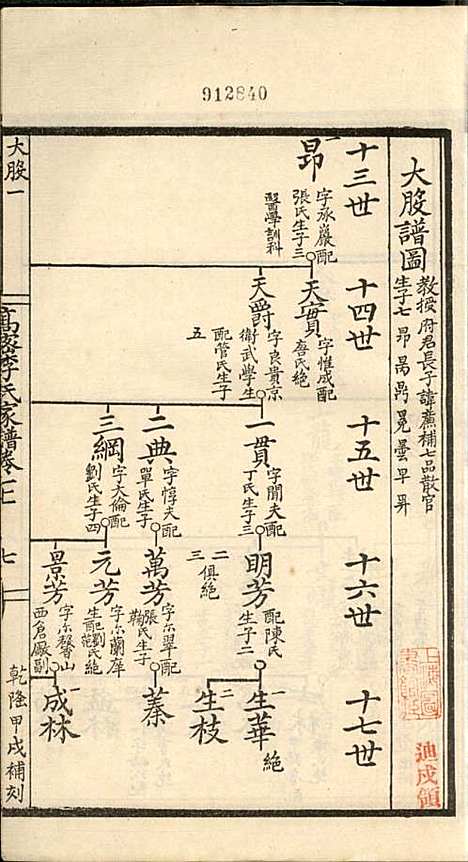 912840
大股譜圖
教授府君長子諱薦補七品散官
生子七昂禺昺冕曇早昇
十三世
十四世
十五世
十六世
十七世
一
昂
字承嚴配
張氏生子三
醫學訓科
天寳
字惟成配
唐氏絕
天爵
字良貴京
衛武學生
配管氏生子
五
一貫
字閒夫配
丁氏生子三
明芳
配陳氏
生子二
二
三
俱絕
一
生華
絕
二
生枝
二典
字惇夫配
單氏生子
萬芳
字尔翠配
張氏生子
蓁
三綱
字大倫配
劉氏生子四
元芳
字尔蘭庠
景芳
字尔馨山
西倉廠副
一
成林
大股一
高密李氏家譜卷
七
乾隆甲戌補刻
迪戍領